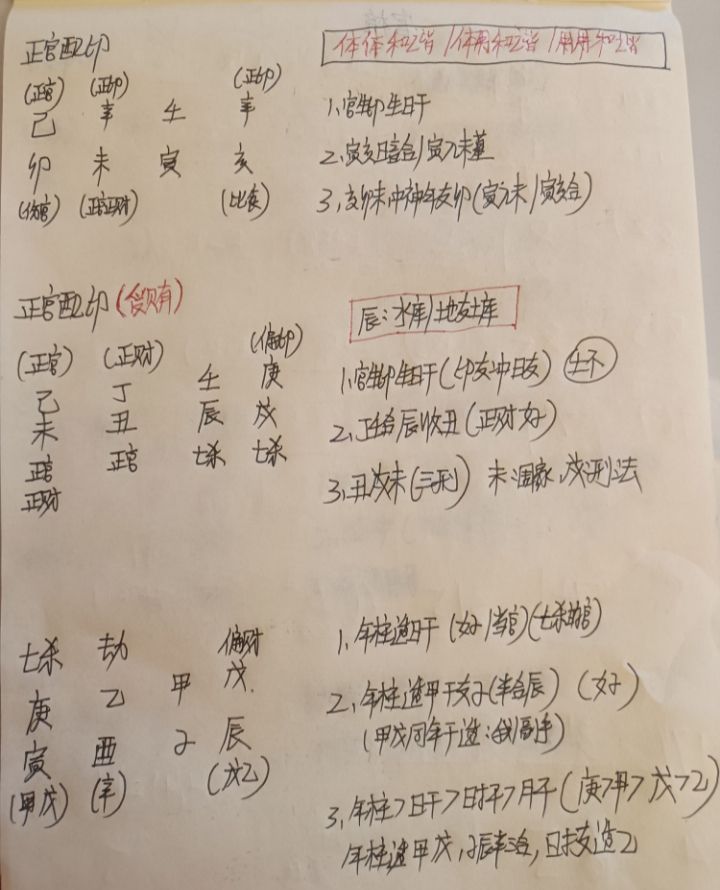 正官配印
体体和谐/体用和谐/用用和谐
(正官) (正印) (正印)
己 辛 壬 辛
卯 未 寅 亥
(伤官) (正官正财) (比食)
1,官生印生日干
2,寅亥暗合/寅入未墓
3,亥卯未冲神年支卯(寅入未/寅亥合)
正官配印(贪财)
辰:水库/地支土库
(正官) (正财) (偏印)
己 丁 壬 庚
未 丑 辰 戌
正官 正官 七杀 七杀
正财
1,官生印生日干(印支冲日支)
2,丁壬合辰收丑(正财好)
3,丑戌未(三刑) 未:国家,戌刑法
七杀 劫 偏财
庚 乙 甲 戊
寅 酉 子 辰
(甲戊) (辛) (戊乙)
1,年柱透日干(好/当官)(七杀为官)
2,年柱透甲干支子(半合辰) (好)
(甲戊同年干透:我副手)
3,年柱>日干>时干>月干(庚>甲>戊>乙)
年柱透甲戊,子辰半合,日支透乙